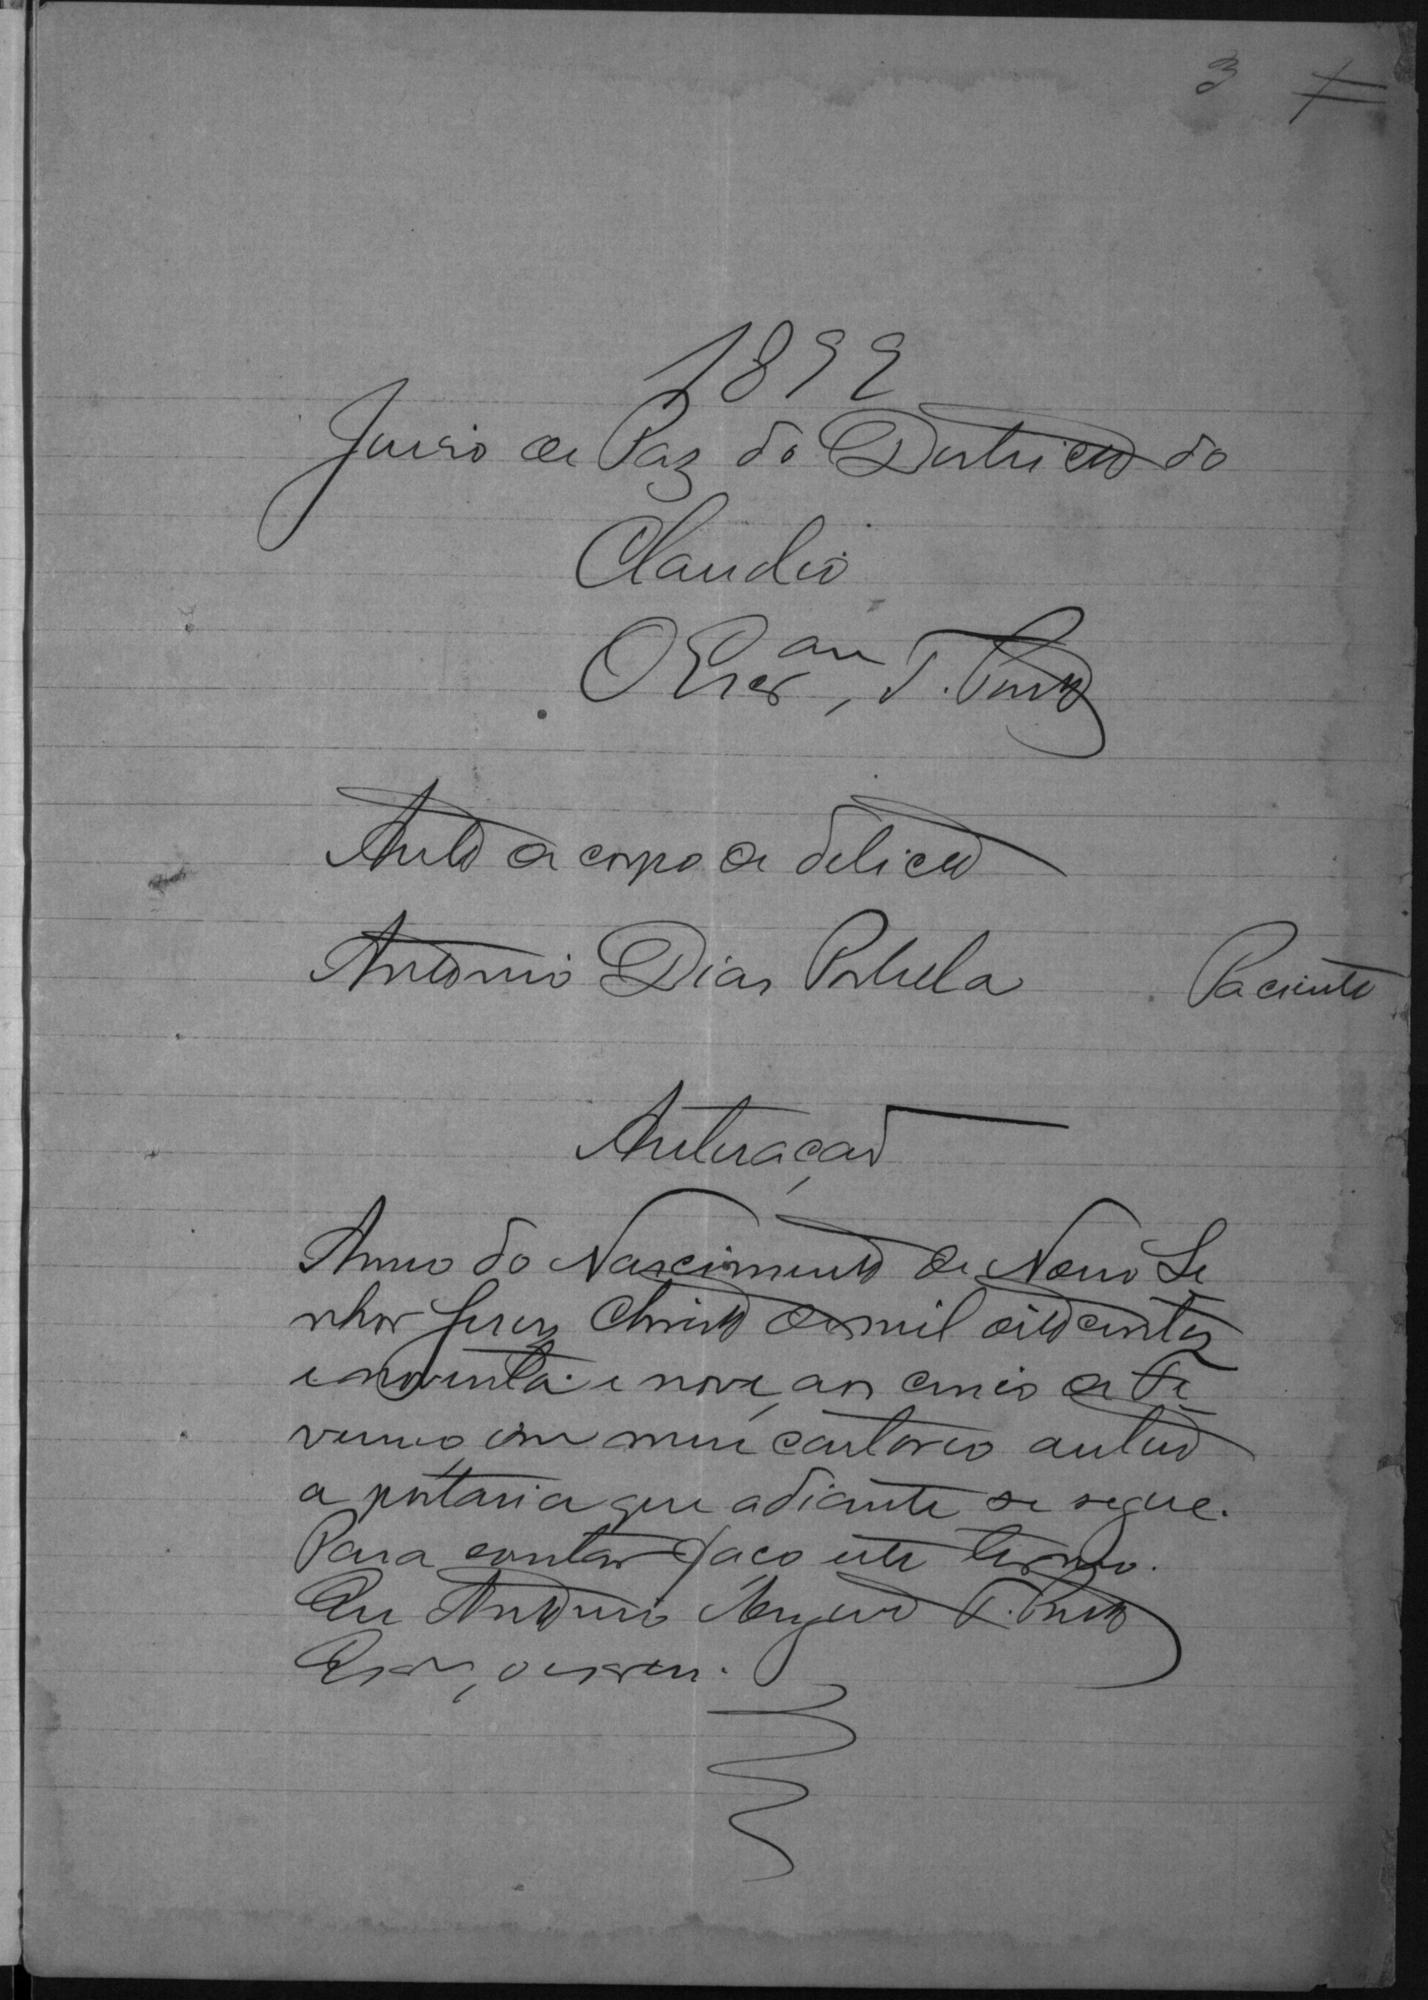 3
1899
Juiso de Paz do Districto do
Claudio
O Escr am, T. Porto
Auto de corpo de delicto
Antonio Dias Portela Paciente
Autuação
Anno do Nascimento de Nosso Se
nhor Jesus Christo de mil oitocentos
e noventa e nove, aos cinco de Fe
vereiro em meu cartorio autuo
a portaria que adiante se segue.
Para constar faço este termo.
Eu Antonio T. Porto
Escrm, o escrevi.